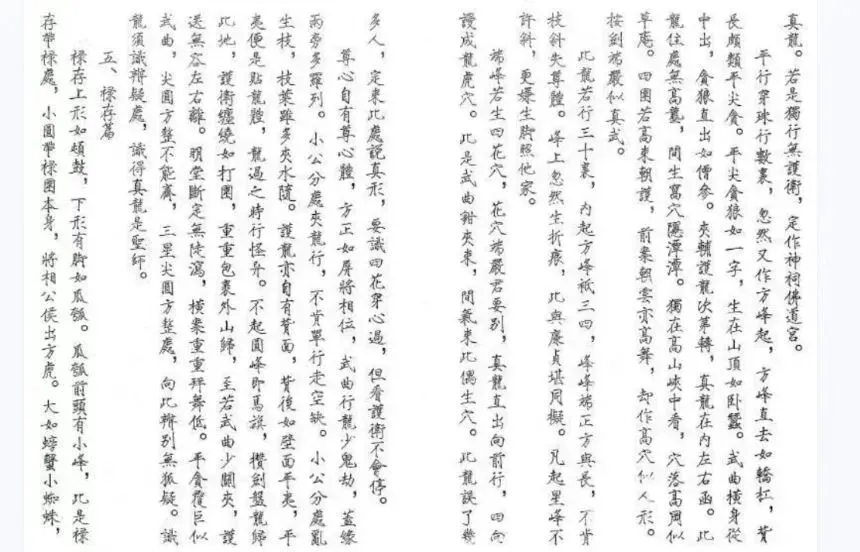 真龍。若是獨行無護衛，定作神祠佛道宮。
平行穿珠行數裏，忽然又作方峰起，方峰直去如轎杠，背
長頗類平尖貪。平尖貪狼如一字，生在山頂如臥蠶。武曲橫身從
中出，貪狼直出如僧參。夾輔護龍次第轉，真龍在內左右函。此
龍住處無高壟，間生窩穴隱潭潭。獨在高山峽中看，穴落高岡似
草庵。四圍若高來朝護，前案朝雲亦高舞，卻作高穴似人形。
按劍端嚴似真武。
此龍若行三十裏，內起方峰祗三四，峰峰端正方與長，不肯
枝斜失尊體。峰上忽然生折痕，此與廉貞堪同擬。凡起星峰不
許斜，更嫌生腳照他家。
端峰若生四花穴，花穴端嚴君要別，真龍直出向前行，四向
謾成龍虎穴。此是武曲鉗夾來，間氣來此偶生穴。此龍誤了幾
多人，定來此處說真形，要識四花穿心過，但看護衛不曾停。
尊心自有尊心體，方正如屏將相位，武曲行龍少鬼劫，蓋緣
兩旁多羅列。小公分處夾龍行，不肯單行走空缺。小公分處亂
生枝，枝葉雖多夾水隨。護龍亦自有背面，背後如壁面平夷，平
夷便是貼龍體，龍過之時行怪異。不起圓峰即馬旗，攢劍盤龍歸
此地，護衛纏繞如打圍，重重包裹外山歸，至若武曲少關夾，護
送無容左右離。明堂斷定無陡瀉，橫案重重拜舞低。平貪覆巨似
武曲，尖圓方整不能齊，三星尖圓方整處，向此辨別無狐疑。識
龍須識辨疑處，識得真龍是聖師。
五、祿存篇
祿存上形如頓鼓，下形有腳如瓜瓠。瓜瓠前頭有小峰，此是祿
存帶祿處，小圓帶祿圍本身，將相公侯出方虎。大如螃蟹小蜘蛛，